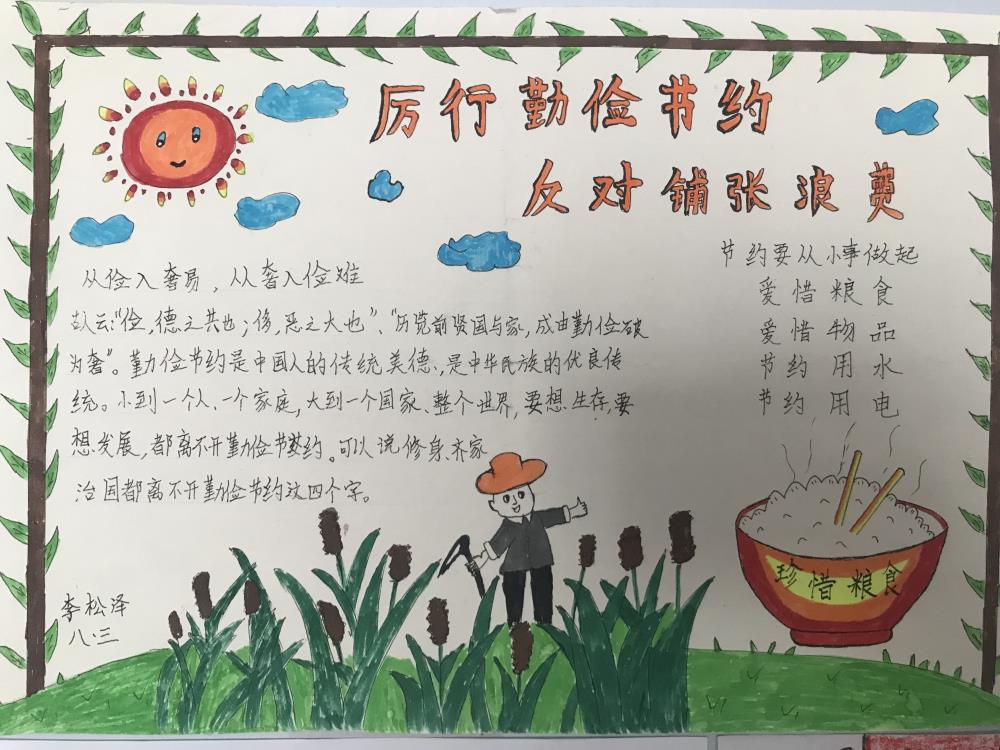 厉行勤俭节约
反对铺张浪费
从俭入奢易，从奢入俭难
古人云:“俭,德之共也;侈,恶之大也”、“历览前贤国与家,成由勤俭破
为奢”。勤俭节约是中国人的传统美德,是中华民族的优良传
统。小到一个人、一个家庭,大到一个国家、整个世界,要想生存,要
想发展,都离不开勤俭节约。可以说修身、齐家
治国都离不开勤俭节约这四个字。
节约要从小事做起
爱惜粮食
爱惜物品
节约用水
节约用电
珍惜粮食
李松泽
八.三